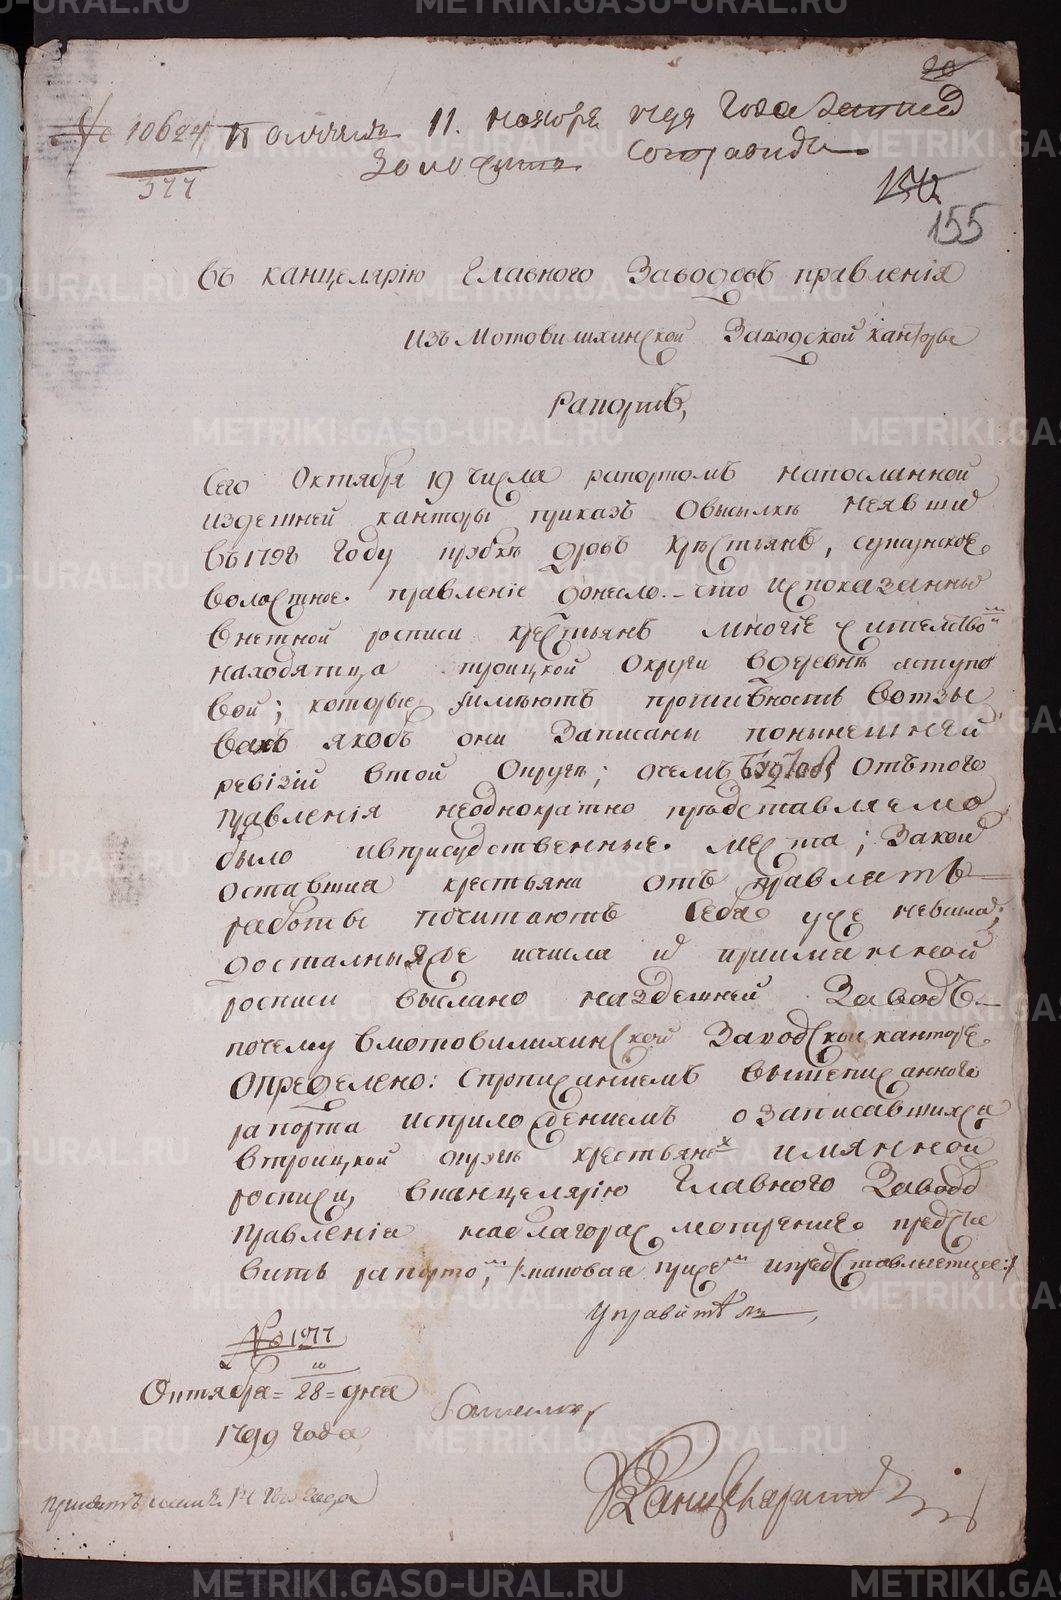 20
№ 10624 Получен 11. ноября 1799 года
377
155
Въ канцелярію Главного Заводовъ правленія
изъ Мотовилихинской Заводской канторы
Рапортъ,
Сего Октября 19 числа рапортомъ напосланной
издешней канторы приказъ овысылкѣ неявши
въ 1798 году крѣстьянъ,
волостное правленіе донесло что ис показанны
внетной росписи крестьянъ многіе жителство
находятца троицкой округи вдеревнѣ
вой; которые имѣютъ противность вотзы
вахъ якобъ они Записаны понынешней
ревізіи втой Округѣ; очемъ отътого
правленія неоднократно прѣдставляемо
было ивприсудственные мѣста; Закои
оставшиа крестьяна отъправлять
работы почитаютъ Себя уже
досталныяжъ исчисла присланной
росписи выслано наздешней Заводъ
почему вмотовилихинской Заводской канторе
Определено: Спрописаниемъ вышеписанного
рапорта исприложениемъ озаписавшихса
втроицкой округѣ крестьянехъ имянной
росписи, вканцелярію Главного Завод
Правленіа наблагоразсмотрение предста
вить рапортомъ, /:каковая присемъ ипредставляетца:/
Управитель
№ 1977
Октября = 28 = дня
1799 года
METRIKI.GASO-URAL.RU